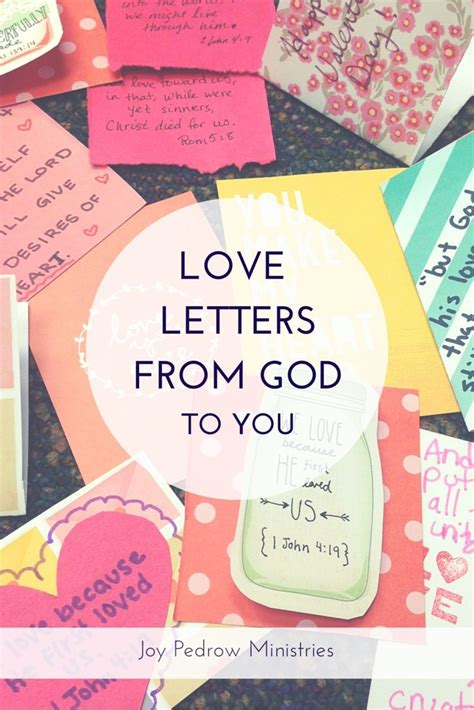 ERFULLY
ade
into the world, I
might live
through him.
1 John 4:9
love toward us,
in that, while were
yet sinners,
Christ died for us.
Rom 5:8
Happy
Valentine
Day.
ELF
HE LORD
ILL GIVE
DESIRES OF
HEART.
YOU
MAKE
MY
HEART
"but God
his love
that
st
LOVE
LETTERS
FROM GOD
TO YOU
WE LOVE
because
HE first
loved
US
{1 John 4:19}
love because
he first
loved us.
And
put
all
unit
Joy Pedrow Ministries